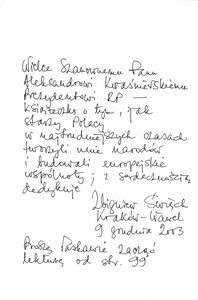 Wielce Szanownemu Panu
Aleksandrowi Kwaśniewskiemu
Prezydentowi RP —
książeczkę o tym, jak
starzy Polacy
w najtrudniejszych czasach
tworzyli unie narodów
i budowali europejskie
wspólnoty; z serdecznością
dedykuje
Zbigniew Święch
Kraków-Wawel
9 grudnia 2003
Proszę łaskawie zacząć
lekturę od str. 99